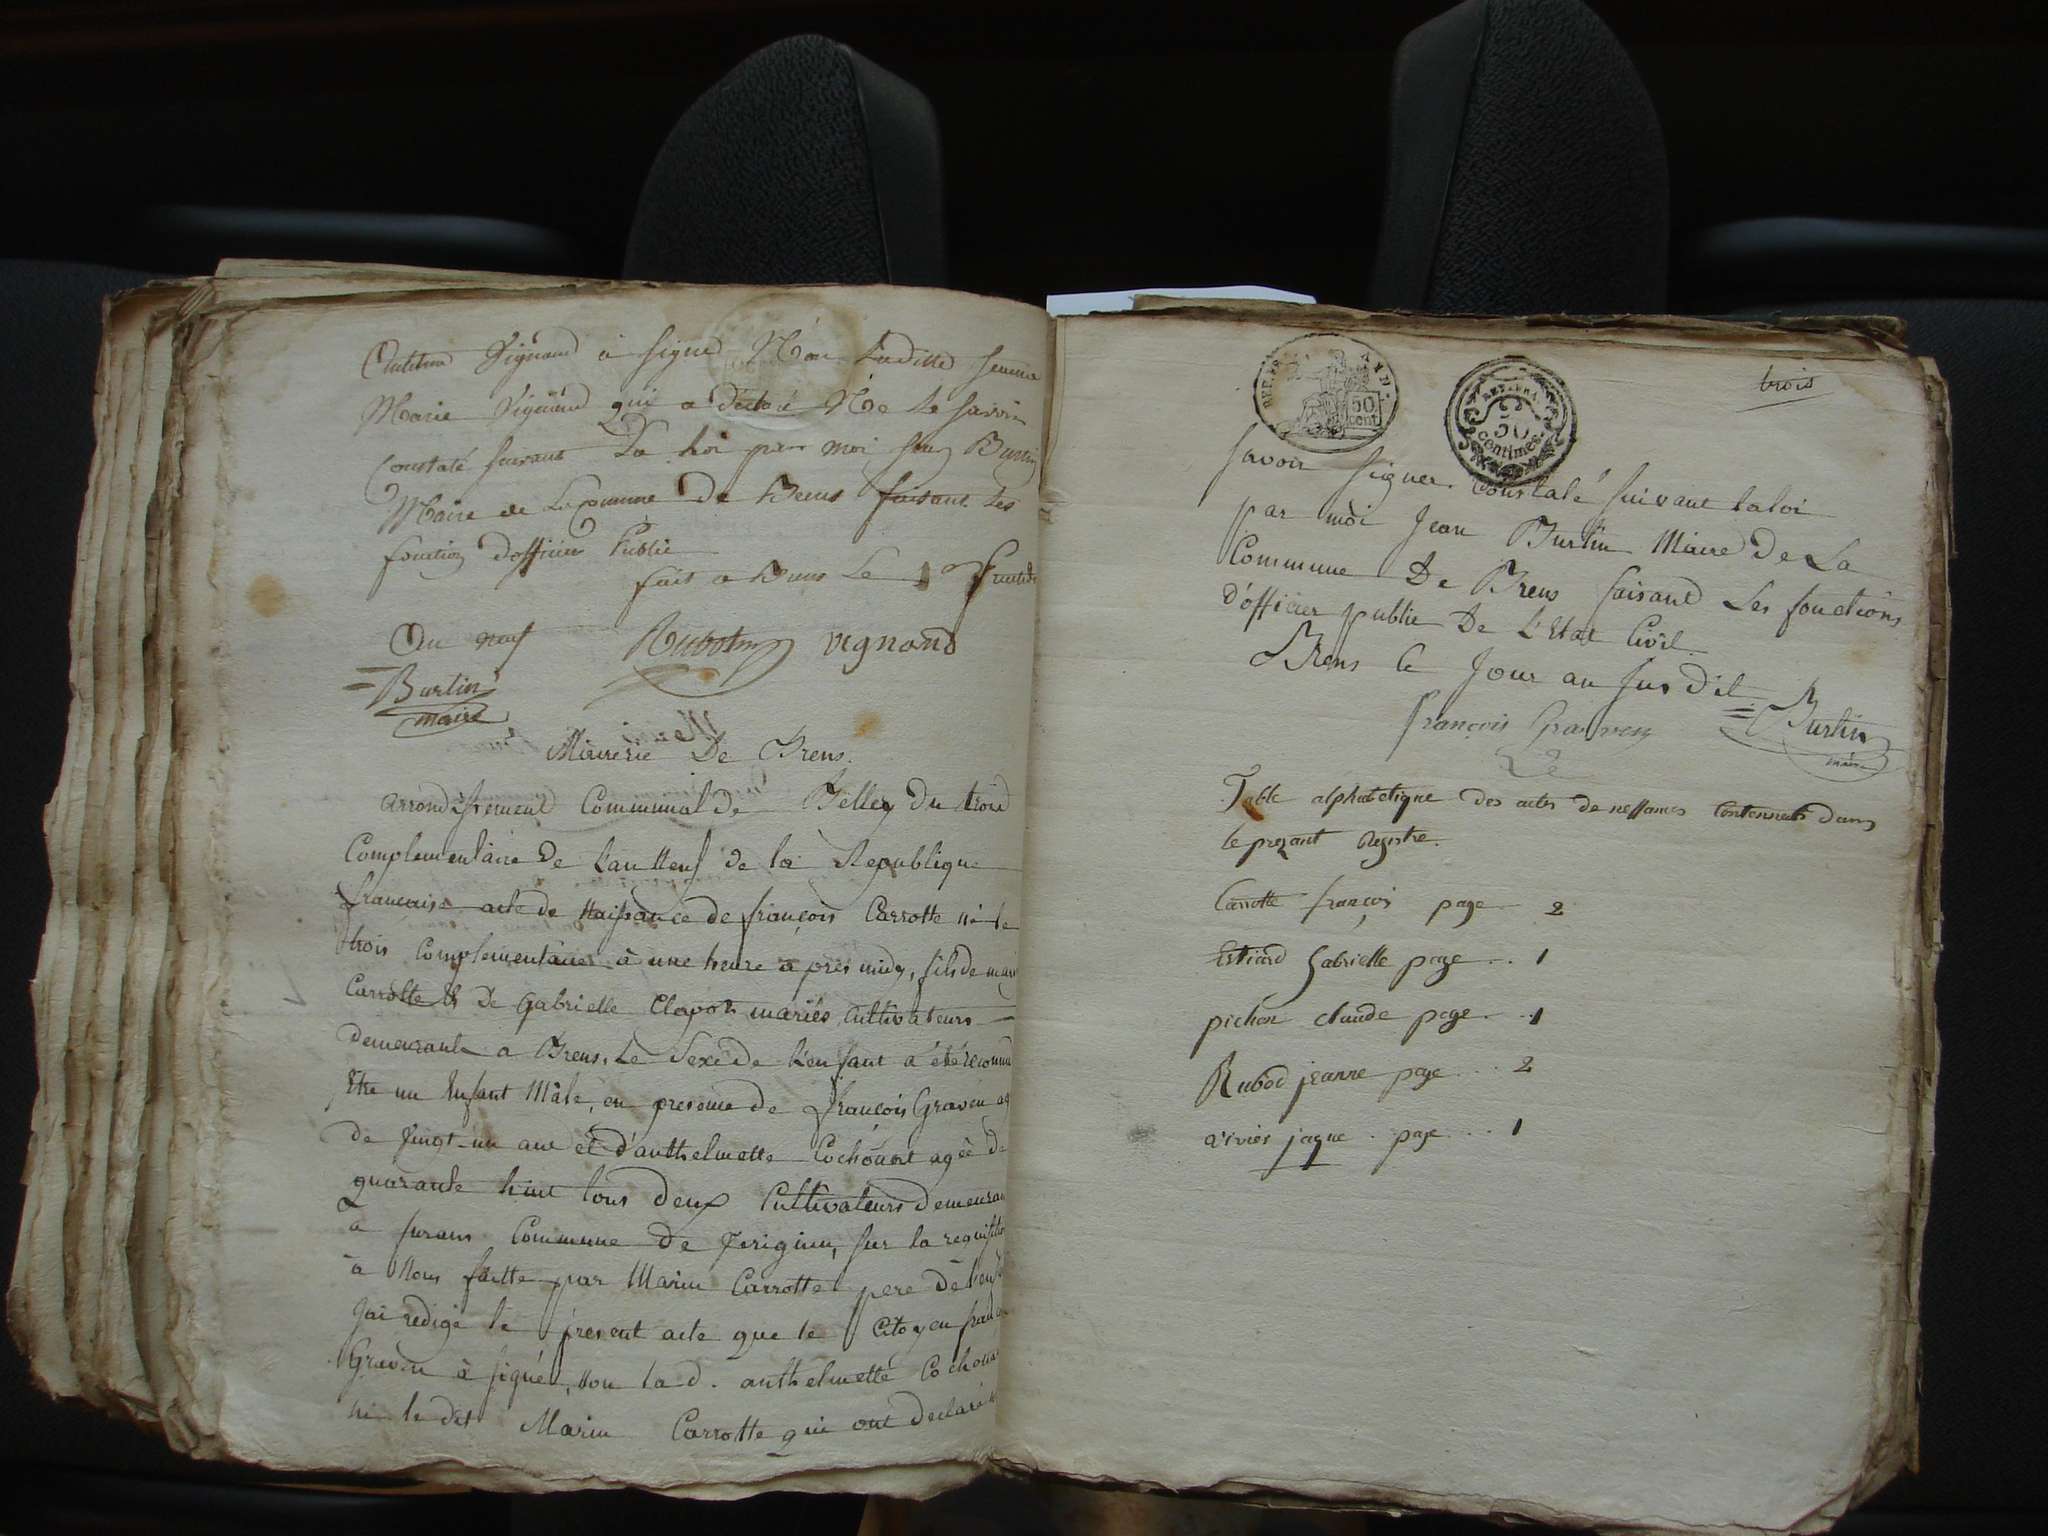 Vignand à signé Non Laditte femme
Marie Vignand qui a déclaré Ne le savoir
Constaté suivant La Loi par moi Jean Burtin
Maire de La Commune De Brens faisant les
fonction d'officier Public
fait a Brens Le 1er fructid
An neuf Rubod vignand
Burtin
maire
Mairerie De Brens.
arrondissement Communal de Belley du trois
Complementaire de L'an Neuf de la Republique
francaise acte de Naissance de françois Carrotte né le
trois complementaire à une heure a près midy, fils de marin
Carrotte & De Gabrielle Clapot mariés Cultivateurs
demeurants a Brens, Le Sexe de L'enfant a été reconnu
Etre un Enfant Mâle, en presence de françois Graven ag
de vingt-un ans et d'anthelmette Cochonat agée de
quarante huit tous deux Cultivateurs demeuran
a Commune de sur la requisition
à Nous faitte par Marin Carrotte pere de L'enf
Jai redigé le présent acte que le Citoyen fran
Graven à signé, Non La d. anthelmette Cochona
ni le dit Marin Carrotte qui ont declaré n
REP. FRA. 50 cent
50 centimes.
trois
Savoir signer. Constaté suivant la loi
par moi Jean Burtin Maire de La
Commune De Brens faisant Les fonctions
d'officier public De L'Etat Civil.
Brens le Jour an sus dit
françois Graven Burtin
maire
Table alphabetique des actes de nessances Contennus dans
le prezant Registre.
Carrotte françois page 2
Estiard Gabrielle page .. 1
pichon claude page . . 1
Rubod jeanne page . . . 2
vivier jaque . page . . . 1